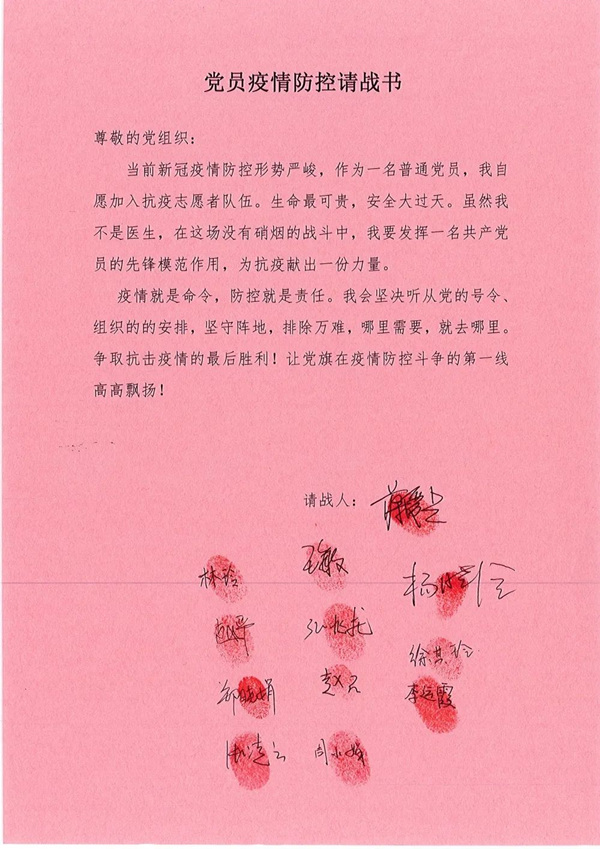 党员疫情防控请战书
尊敬的党组织：
当前新冠疫情防控形势严峻，作为一名普通党员，我自
愿加入抗疫志愿者队伍。生命最可贵，安全大过天。虽然我
不是医生，在这场没有硝烟的战斗中，我要发挥一名共产党
员的先锋模范作用，为抗疫献出一份力量。
疫情就是命令，防控就是责任。我会坚决听从党的号令、
组织的的安排，坚守阵地，排除万难，哪里需要，就去哪里。
争取抗击疫情的最后胜利！让党旗在疫情防控斗争的第一线
高高飘扬！
请战人：
林玲 王敏
徐其玲
郑晓娟 李远霞
周小妹